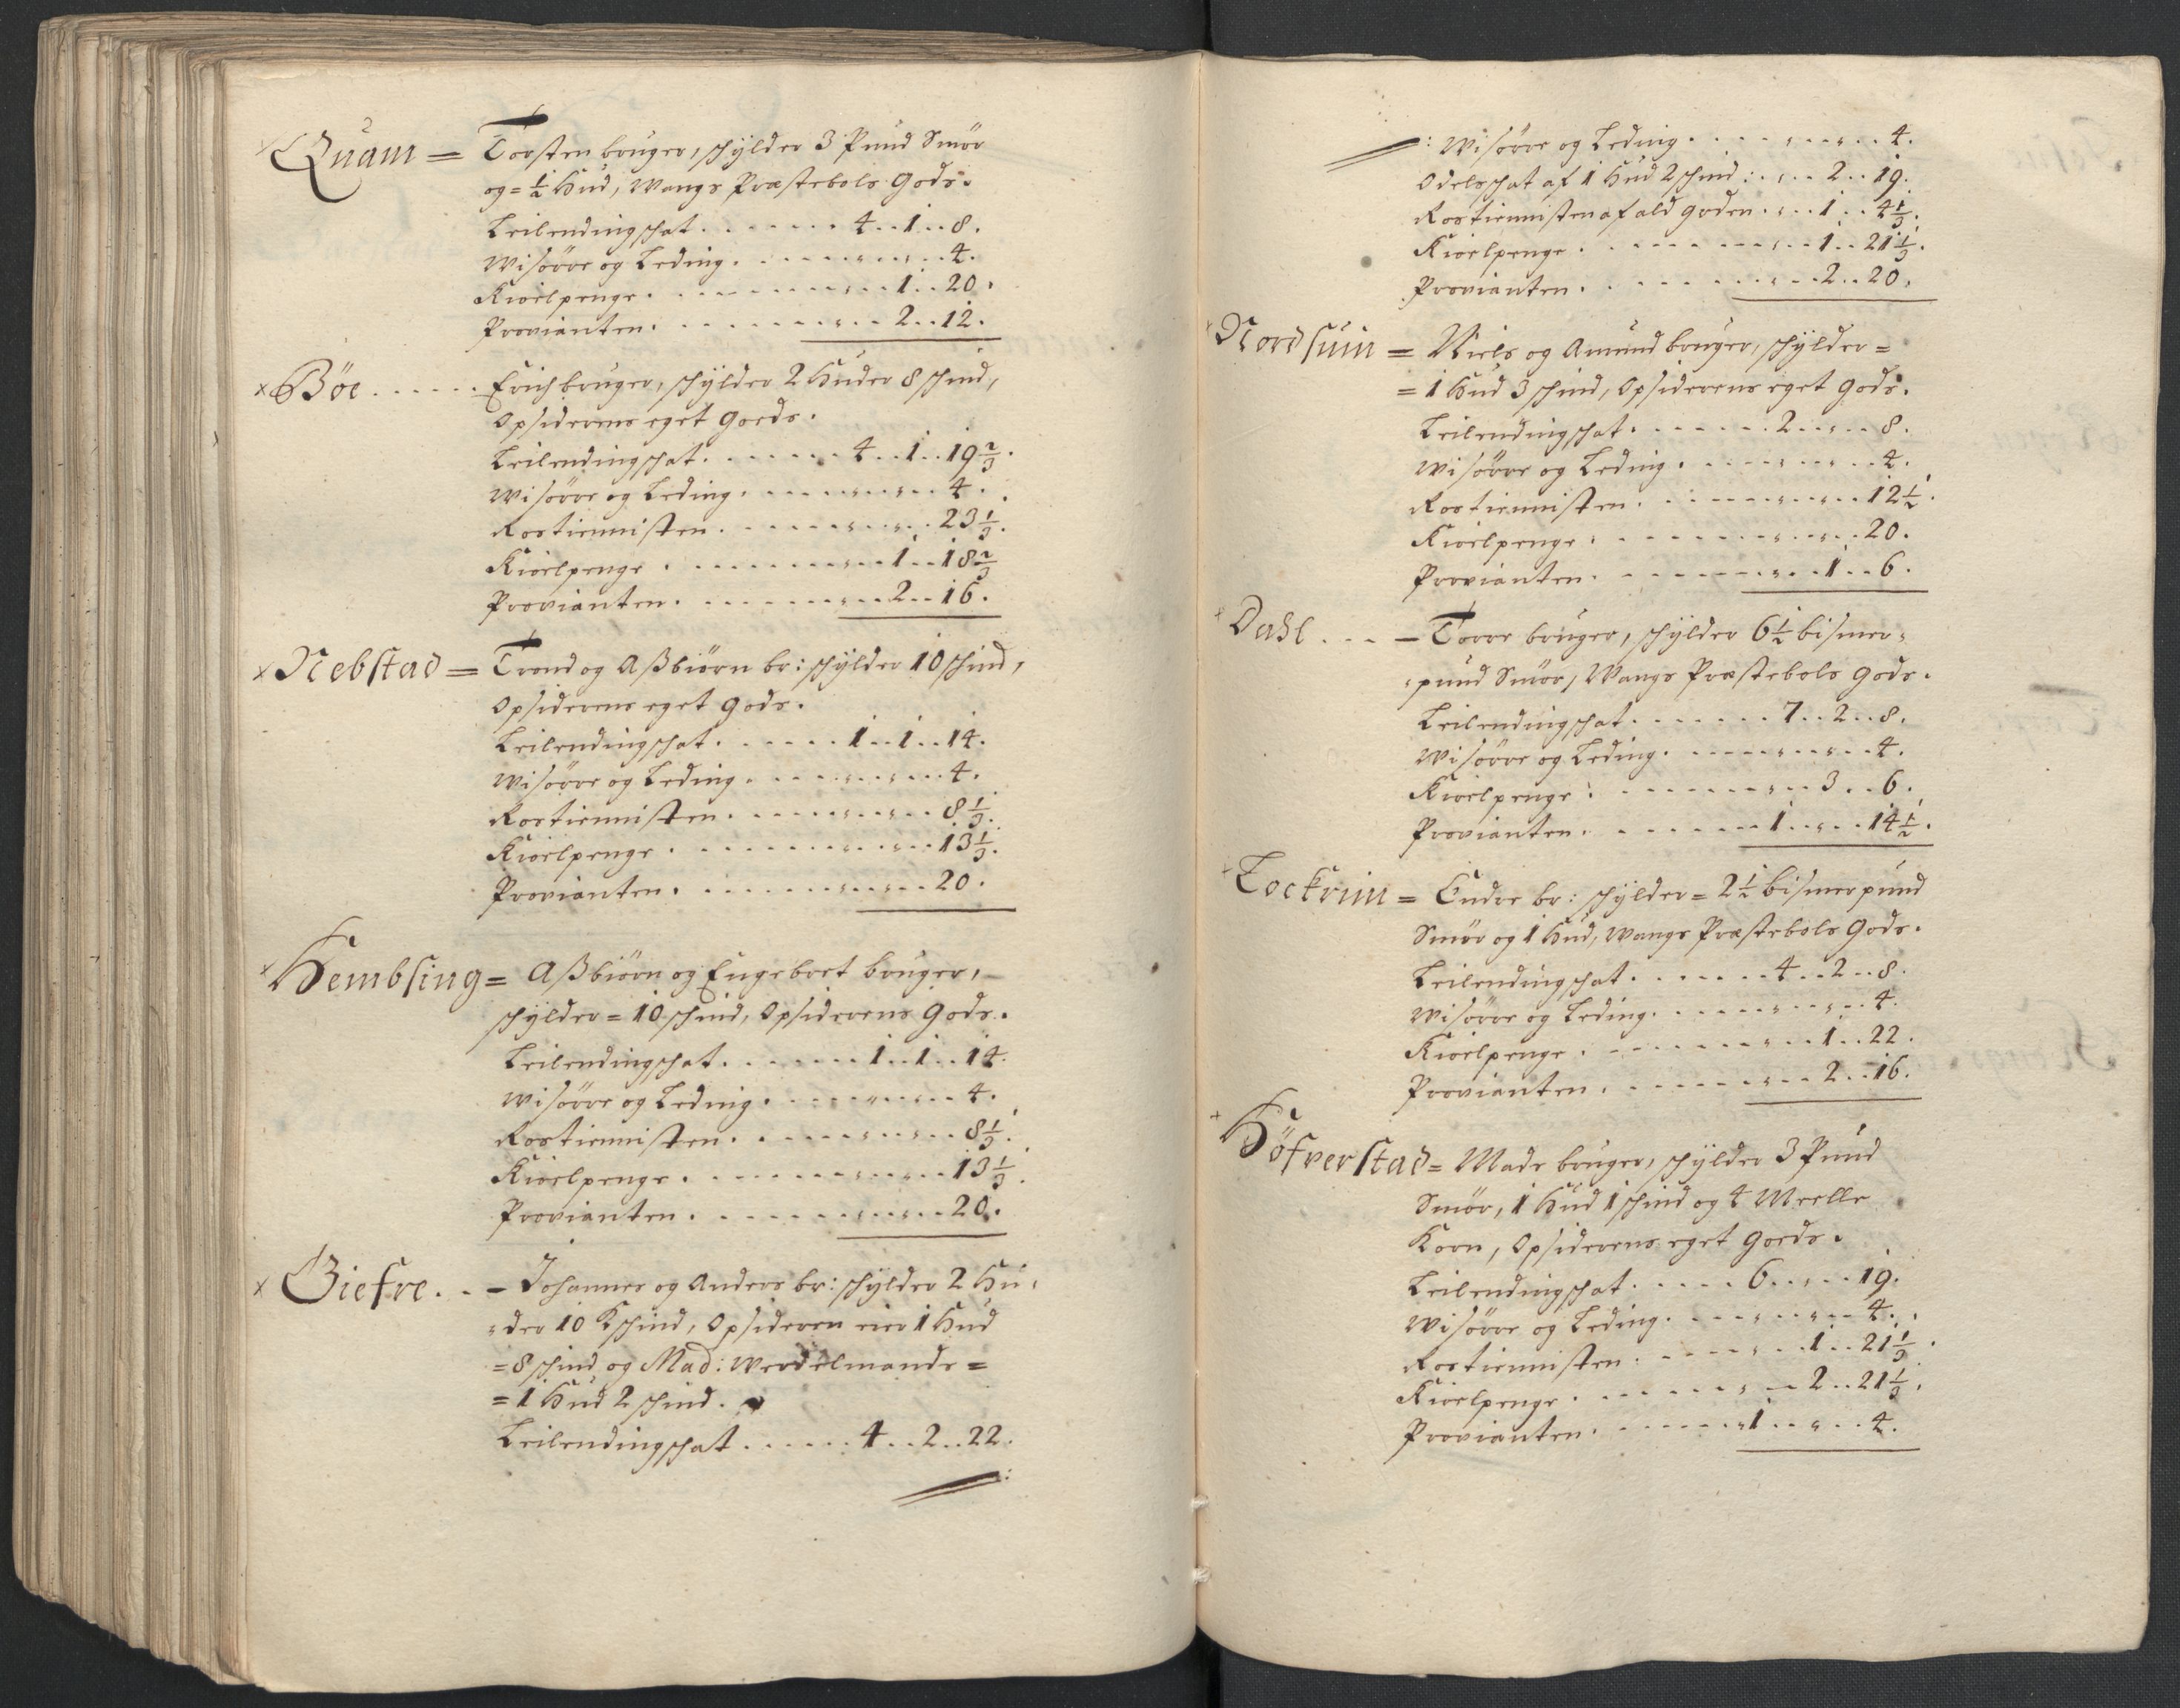 Quam = Torsten bruger, schylder 3 Pund Smør
og = ½ Hud, Wangs Præstebols Gods.
Leilendingschat . . . . . . . 4 . . 1 . . 8 .
Wisørre og Leding . . . . . „ . . „ . . 4 .
Kiøelpenge . . . . . . . „ . . 1 . . 20 .
Provianten . . . . . . . „ . . 2 . . 12 .
× Bøe . . . . . Erich bruger, schylder 2 Huder 8 schind,
Opsiderens eget Goeds .
Leilendingschat . . . . . . . 4 . . 1 . . 19⅔ .
Wisørre og Leding . . . . . „ . . „ . . 4 .
Rostiennisten . . . . . . „ . . „ . . 23⅓ .
Kiøelpenge . . . . . . . „ . . 1 . . 18⅔
Provianten . . . . . . . „ . . 2 . . 16 .
× Nebstad = Trond og Aßbiørn br: schylder 10 schind,
Opsiderens eget Gods .
Leilendingschat . . . . . . 1 . . 1 . . 14 .
Wisørre og Leding . . . . . „ . . „ . . 4 .
Rostiennisten . . . . . . „ . . „ . . 8⅓ .
Kiøelpenge . . . . . . . „ . . „ . . 13⅓ .
Provianten . . . . . . . „ . . „ . . 20 .
× Hembsing = Aßbiørn og Engebret bruger,
schylder = 10 schind, Opsiderens Gods .
Leilendingschat . . . . . . . 1 . . 1 . . 14 .
Wisørre og Leding . . . . . „ . . „ . . 4 .
Rostiennisten . . . . . . „ . . „ . . 8⅓ .
Kiøelpenge . . . . . . . „ . . „ . . 13⅓ .
Provianten . . . . . . . „ . . „ . . 20 .
× Giefre . . – Johannes og Anders br: schylder 2 Hu-
„der 10 Kschind, Opsideren eier 1 Hud
= 8 schind og Mad: Werdelmands =
= 1 Hud 2 schind .
Leilendingschat . . . . . . 4 . . 2 . . 22 .
: Wisørre og Leding . . . . „ . . „ . . 4 .
Odelsschat af 1 Hud 2 schind : . „ . . 2 . . 19 .
Rostiennisten af ald goden . „ . . 1 . . 4⅓ .
Kiøelpenge . . . . . . . „ . . 1 . . 21⅓ .
Provianten . . . . . . . „ . . 2 . . 20 .
× Nordsuin = Niels og Amund bruger, schylder =
= 1 Hud 3 schind, Opsiderens eget Gods .
Leilendingschat . . . . . . 2 . . „ . . 8 .
Wisørre og Leding . . . . . „ . . „ . . 4 .
Rostiennisten . . . . . . „ . . „ . . 12½ .
Kiøelpenge . . . . . . . „ . . „ . . 20 .
Provianten . . . . . . . „ . . 1 . . 6 .
× Dahl . . . – Torre bruger, schylder 6½ bismer-
„pund Smør, Wangs Præstebols Gods .
Leilendingschat . . . . . . . 7 . . 2 . . 8 .
Wisørre og Leding . . . . . „ . . „ . . 4 .
Kiøelpenge . . . . . . . „ . . 3 . . 6 .
Provianten . . . . . . . 1 . . „ . . 14½ .
× Lockrim = Gudre br: schylder = 2½ bismerpund
Smør og 1 Hud, Wangs Præstebols Gods .
Leilendingschat . . . . . . 4 . . 2 . . 8 .
Wisørre og Leding . . . . . „ . . „ . . 4 .
Kiøelpenge . . . . . . . „ . . 1 . . 22 .
Provianten . . . . . . . „ . . 2 . . 16 .
× Höfverstad = Mads bruger, schylder 3 Pund
Smør, 1 Hud 1 schind og 4 Meelle
Korn, Opsiderens eget Goeds .
Leilendingschat . . . . . 6 . . „ . . 19 .
Wisørre og Leding . . . . „ . . „ . . 4 .
Rostiennisten . . . . . „ . . 1 . . 21⅓ .
Kiøelpenge . . . . . . „ . . 2 . . 21⅓ .
Provianten . . . . . . 1 . . „ . . 4 .